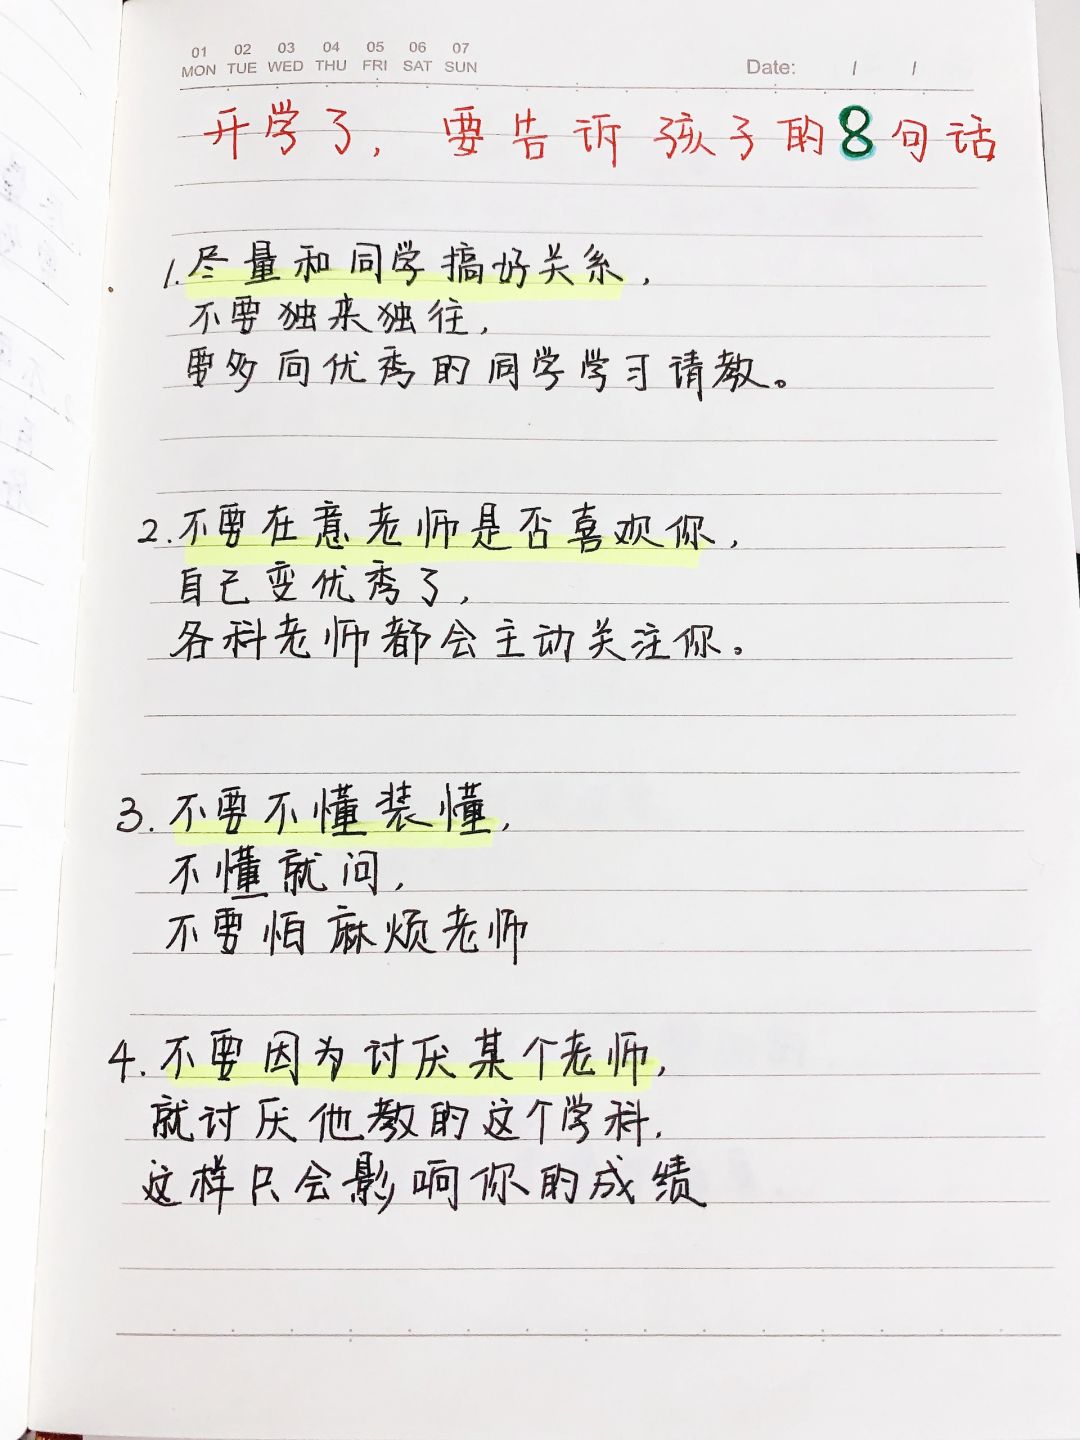 01 02 03 04 05 06 07
MON TUE WED THU FRI SAT SUN
Date: / /
开学了，要告诉孩子的8句话
1.尽量和同学搞好关系，
不要独来独往，
要多向优秀的同学学习请教。
2.不要在意老师是否喜欢你，
自己变优秀了，
各科老师都会主动关注你。
3.不要不懂装懂，
不懂就问，
不要怕麻烦老师
4.不要因为讨厌某个老师，
就讨厌他教的这个学科，
这样只会影响你的成绩